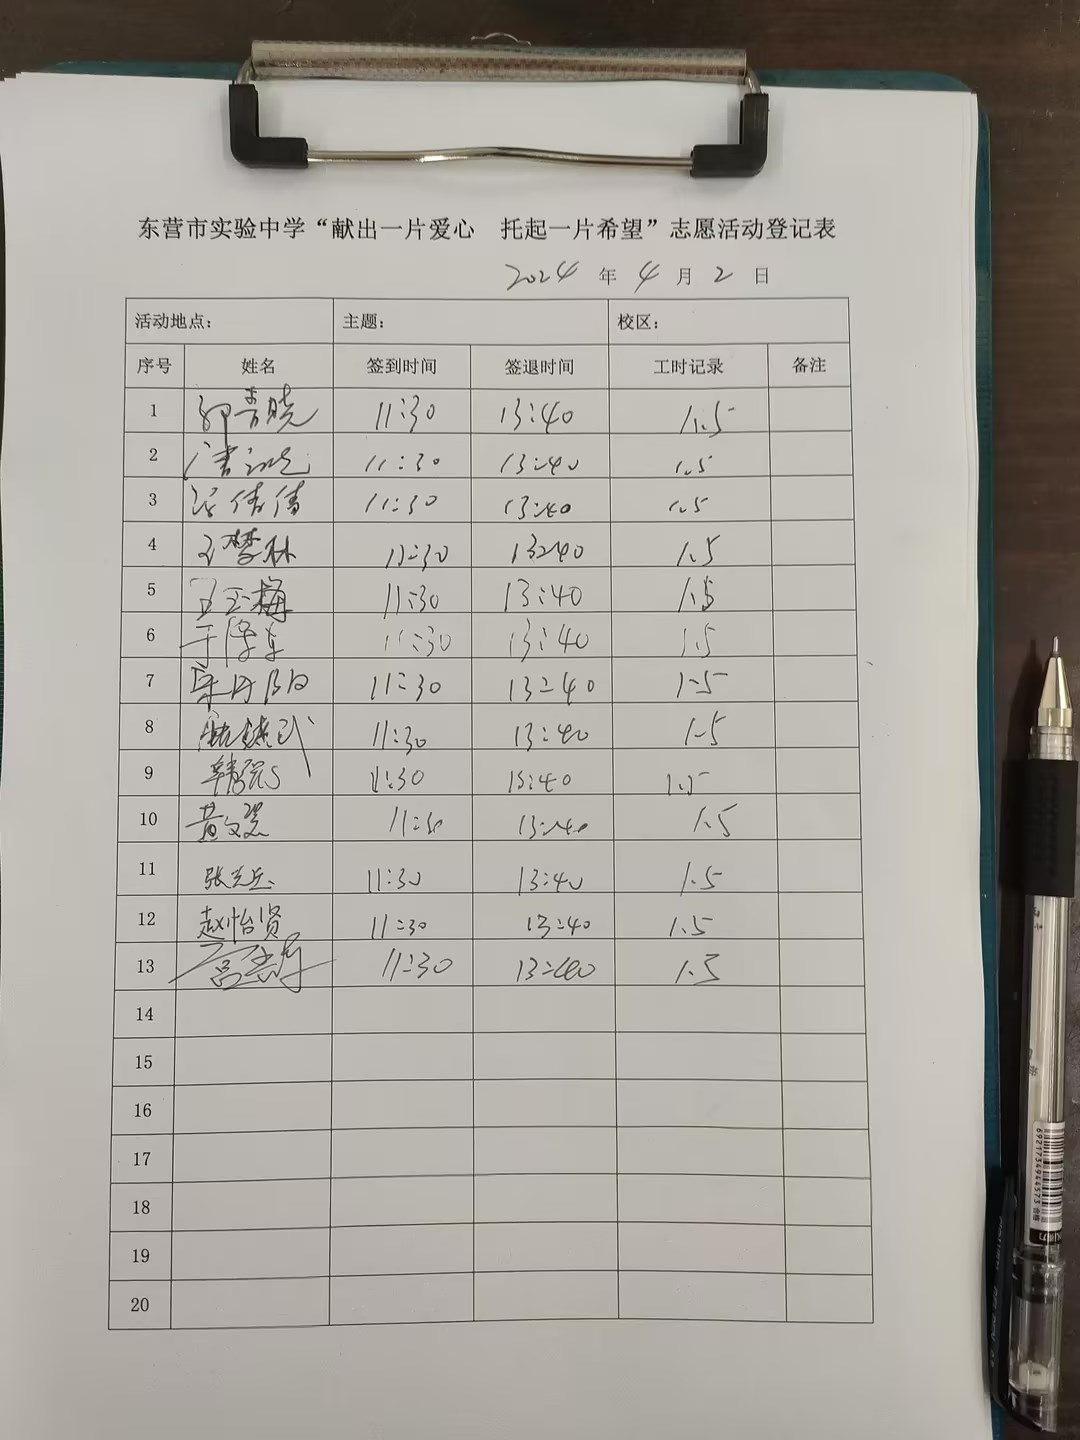 东营市实验中学“献出一片爱心 托起一片希望”志愿活动登记表
2024 年 4 月 2 日
活动地点： 主题： 校区：
序号 姓名 签到时间 签退时间 工时记录 备注
1 11:30 13:40 1.5
2 11:30 13:40 1.5
3 倩倩 11:30 13:40 1.5
4 王梦林 11:30 13:40 1.5
5 王玉梅 11:30 13:40 1.5
6 11:30 13:40 1.5
7 11:30 13:40 1.5
8 11:30 13:40 1.5
9 11:30 13:40 1.5
10 黄文 11:30 13:40 1.5
11 张 11:30 13:40 1.5
12 赵怡贤 11:30 13:40 1.5
13 11:30 13:40 1.5
14
15
16
17
18
19
20